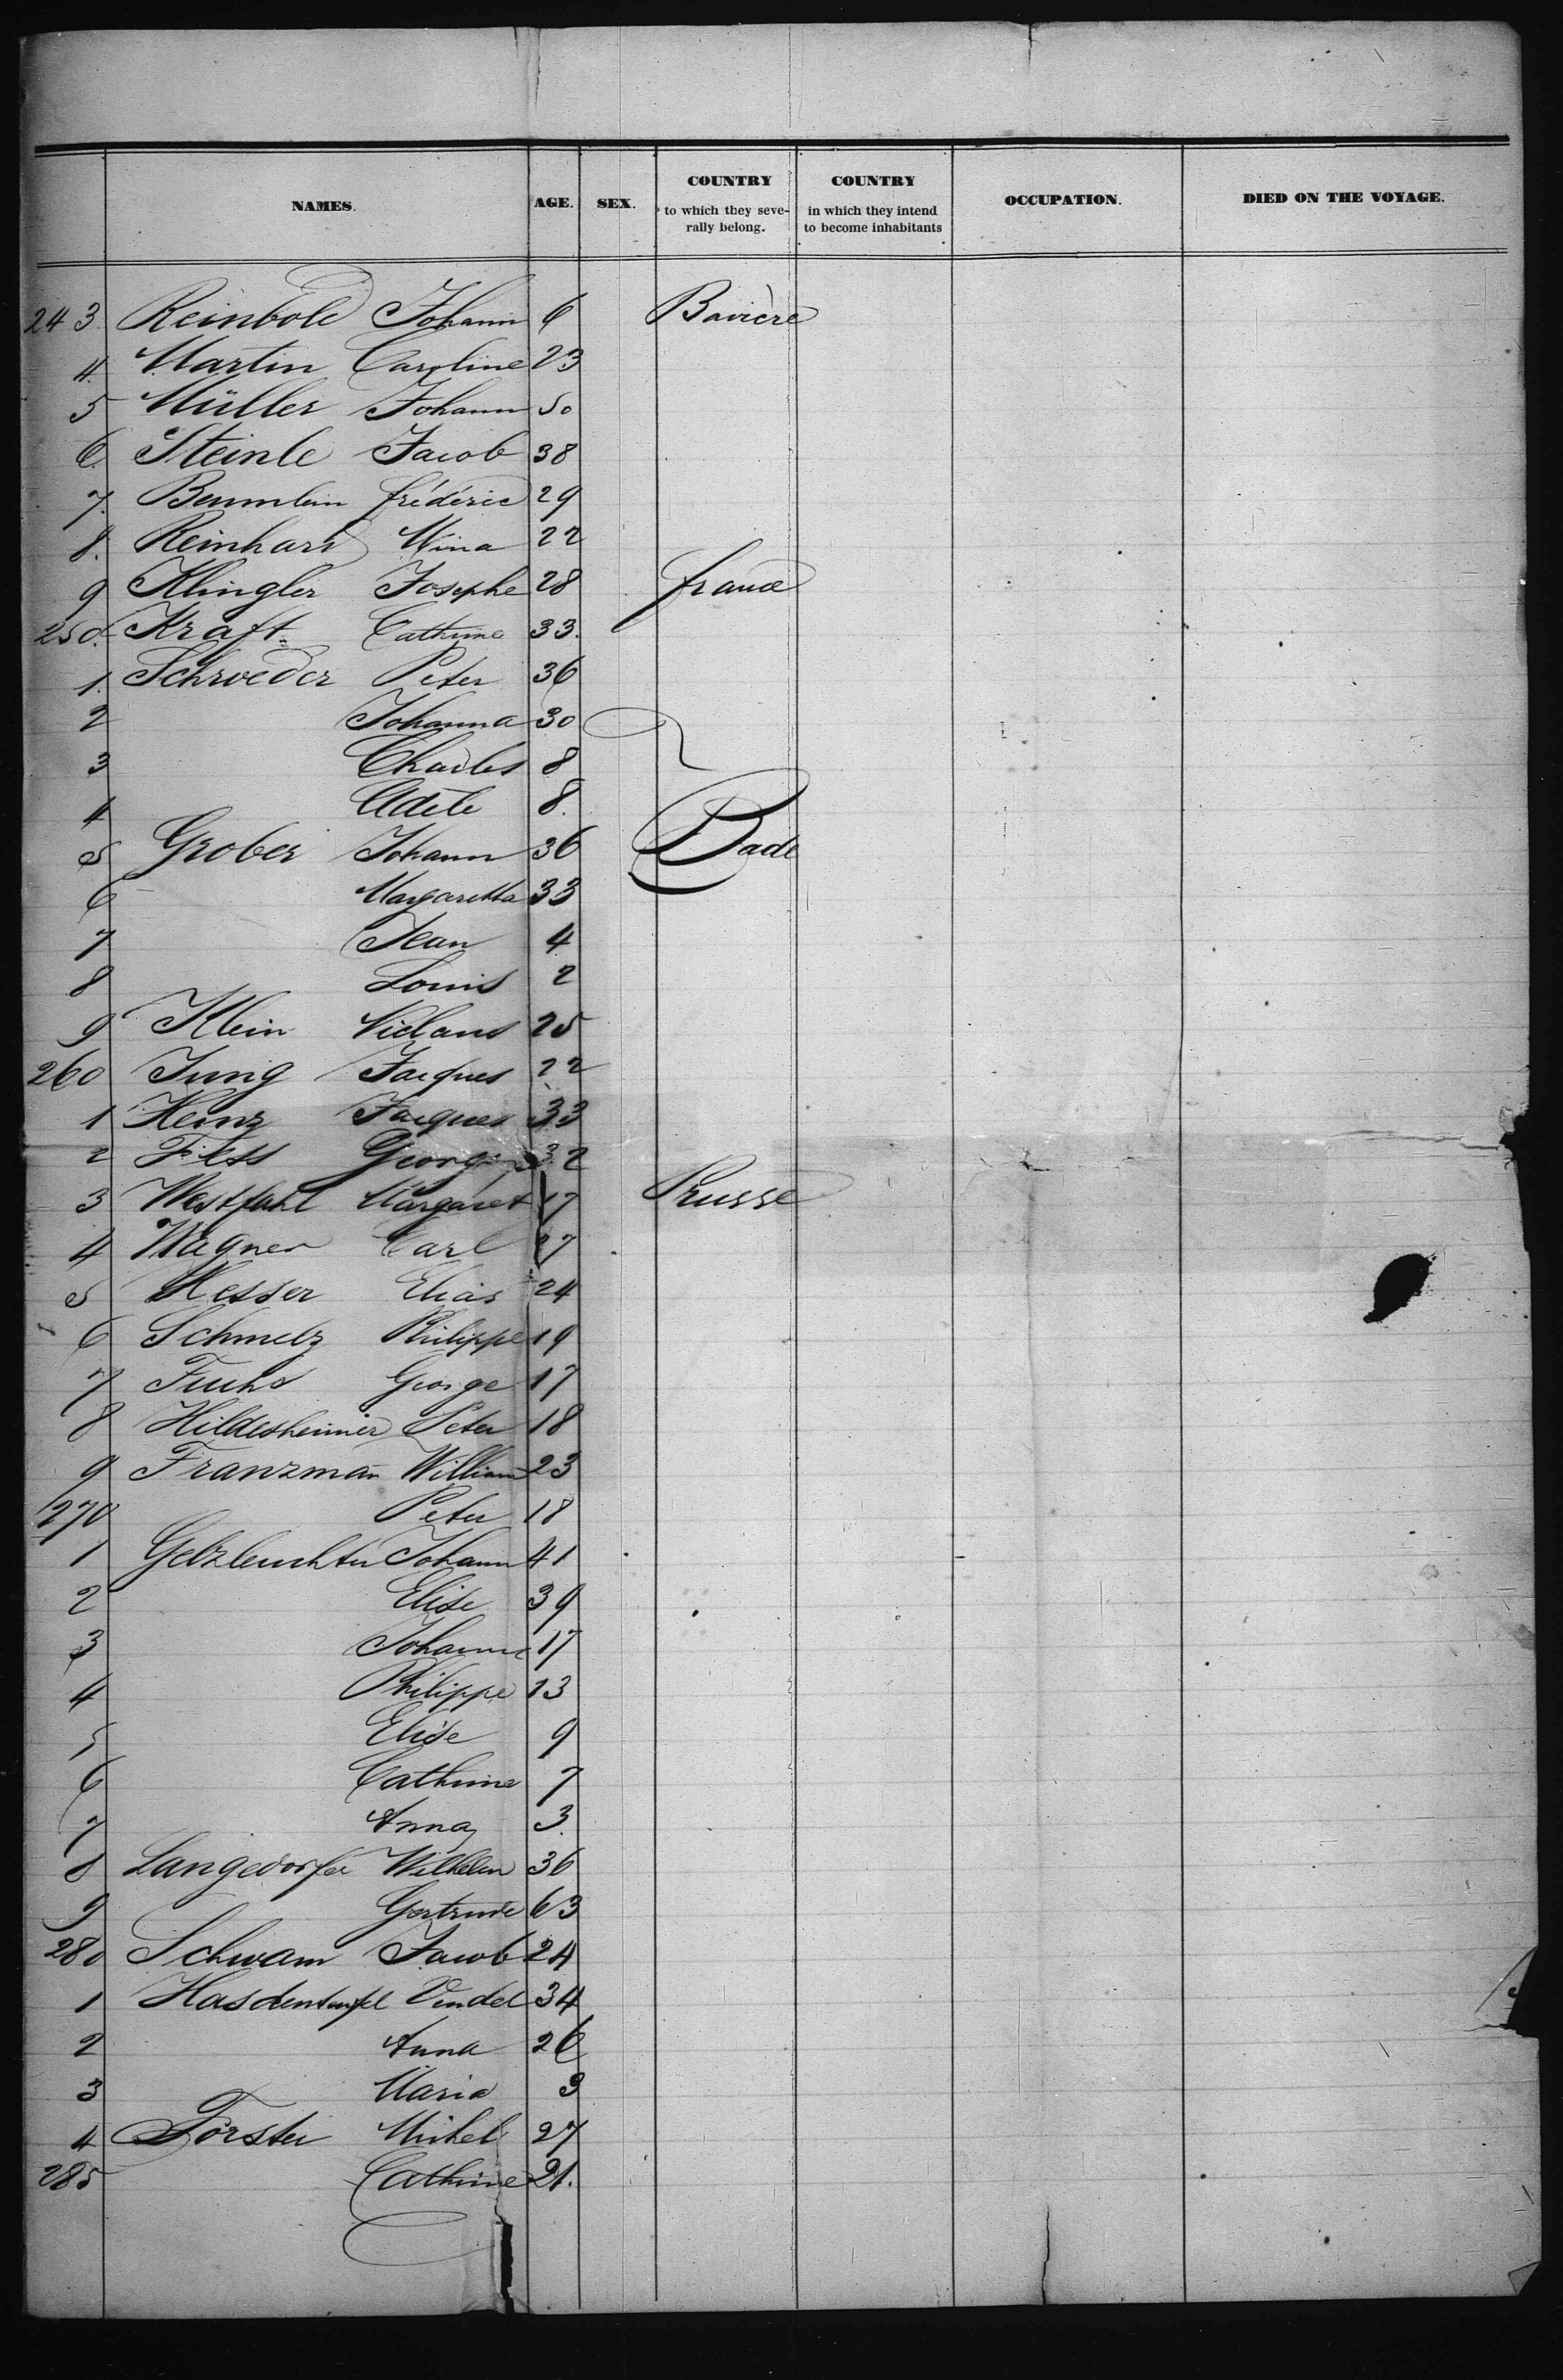 NAMES. AGE. SEX. COUNTRY to which they seve- rally belong. COUNTRY in which they intend to become inhabitants OCCUPATION. DIED ON THE VOYAGE.
243. Reinbold Johann 6 Bavière
4. Martin Caroline 23
5 Müller Johann 50
6. Steinle Jacob 38
7. frédéric 29
8. Reinhard Mina 22
9 Klingler Josephe 28 france
250. Kraft Catherine 33.
1. Schroeder Peter 36
2 Johanna 30
3 Charles 8
4 Adele 8.
5 Grober Johann 36 Bade
6 Margaretta 33
7 Jean 4
8 Louis 2
9 Klein 25
260 Jung Jacques 22
1 Heinz Jacques 33
2 Fess 32
3 Westfahl Margaret 17 Prusse
4 Wagner Carl 27
5 Messer Elias 24
6 Schmelz Philippe 19
7 Fuchs George 17
8 Hildesheimer Peter 18
9 Franzman William 23
270 Peter 18
1 Gelzleuchter Johann 41
2 Elise 39
3 17
4 Philippe 13
5 Elise 9
6 Catherine 7
7 Anna 3.
8 Langedorfer Wilhelm 36
9 Gertrude 63
280 Schwam Jacob 24
1 Hasdenteufel Vendel 34
2 Anna 26
3 Maria 3
4 Forster Michel 27
285 Catherine 21.